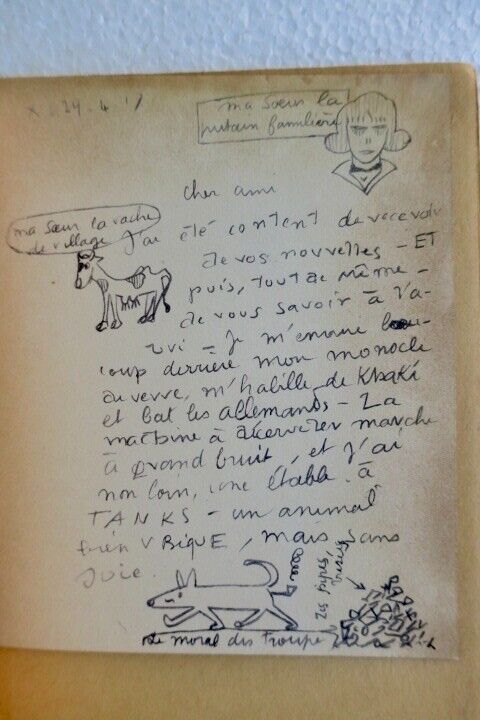 X. 24.4.17
ma sœur la
putain familière
cher ami
ma sœur la vache
de village
J'ai été content de recevoir
de vos nouvelles — ET
puis, tout de même —
de vous savoir à l'a-
bri — Je m'ennuie beau-
coup derrière mon monocle
de verre, m'habille de Khaki
et bat les allemands — La
machine à décerveler marche
à grand bruit, et j'ai
non loin, une étable à
TANKS — un animal
bien UBIQUE, mais sans
joie.
les pipes,
brisées
Le moral des troupes